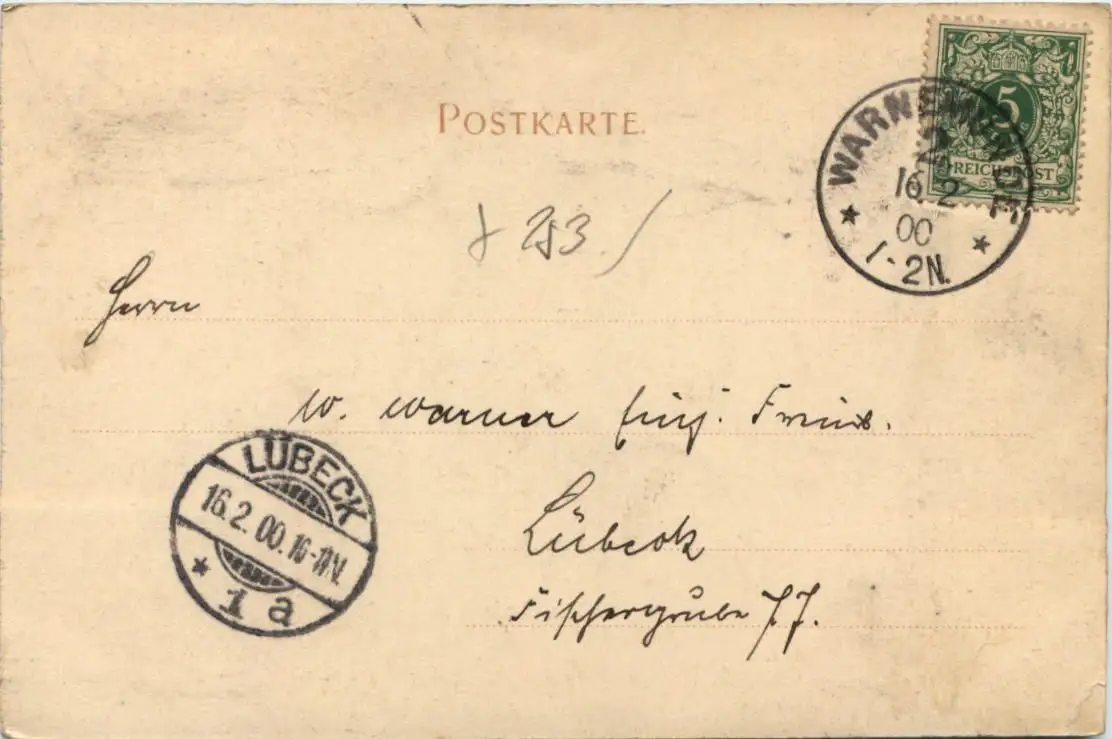 POSTKARTE.
5
REICHSPOST
WARNEMÜNDE
2
16. 2
00
1-2N.
253.
Herrn
W. Warner
Lübeck
Fischergrube 77.
LÜBECK
16.2.00.10-11N.
1 a